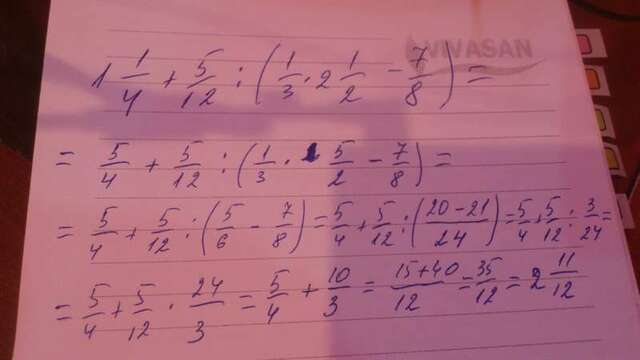 VIVASAN
1 1/4 + 5/12 : (1/3 · 2 1/2 - 7/8) =
= 5/4 + 5/12 : (1/3 · 5/2 - 7/8) =
= 5/4 + 5/12 : (5/6 - 7/8) = 5/4 + 5/12 : (20-21/24) = 5/4 + 5/12 : 3/24 =
= 5/4 + 5/12 · 24/3 = 5/4 + 10/3 = 15+40/12 = 35/12 = 2 11/12